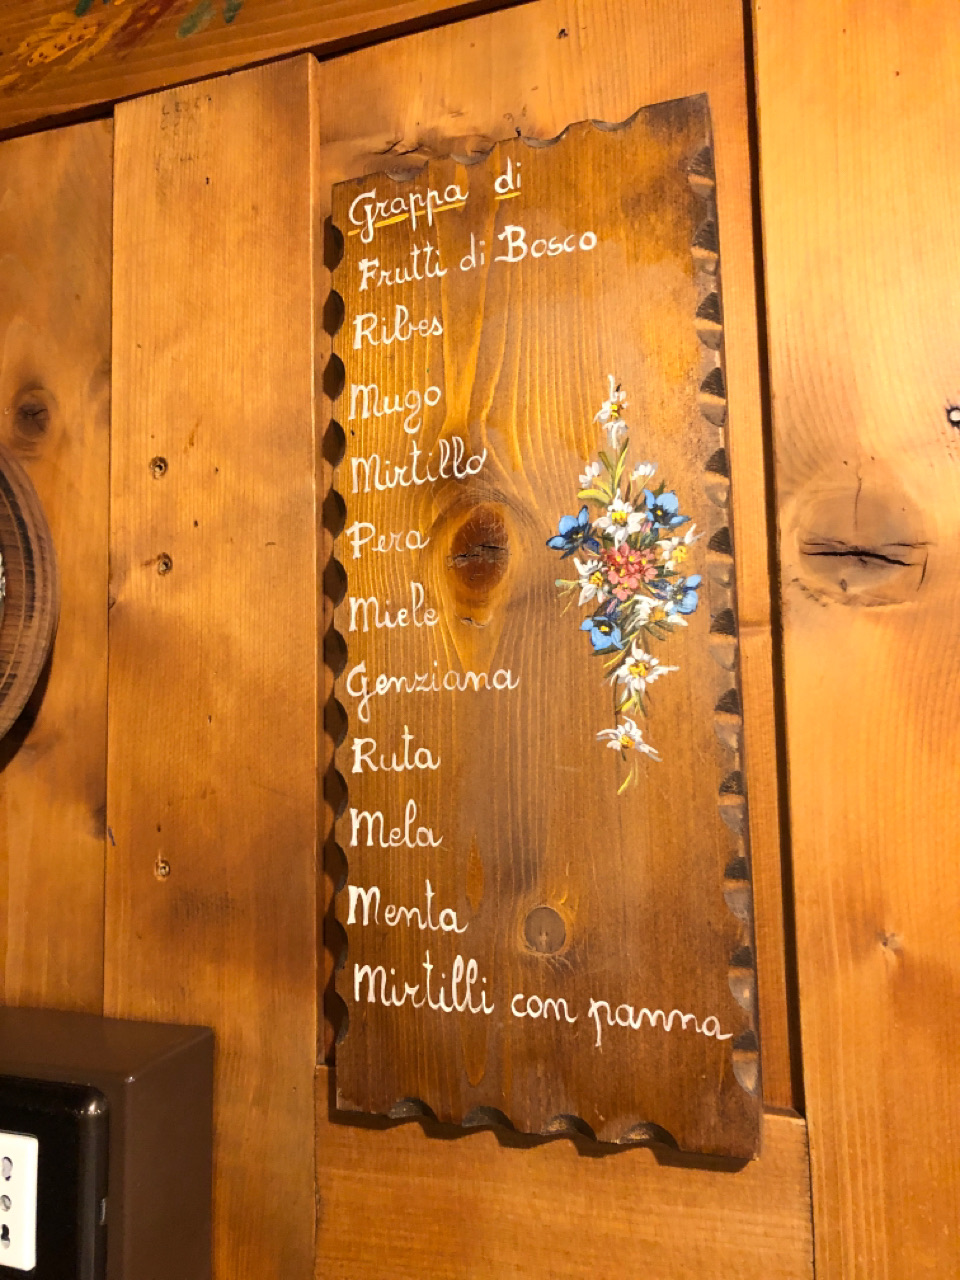 Grappa di
Frutti di Bosco
Ribes
Mugo
Mirtillo
Pera
Miele
Genziana
Ruta
Mela
Menta
Mirtilli con panna